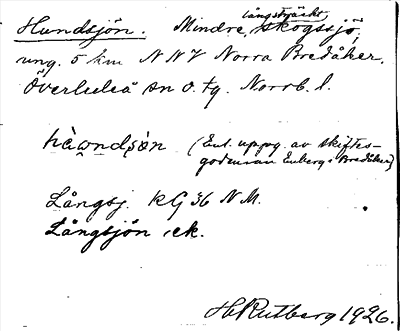 Hundsjön. Mindre, långsträckt skogssjö,
ung. 5 km NNV Norra Bredåker.
Överluleå sn o. tg. Norrb. l.
hàωndsṣòn (Enl. uppg. av skiftes-
godeman Enberg i Bredåker)
Långsj. KG 36 NM.
Långsjön ek.
H. Rutberg 1926.